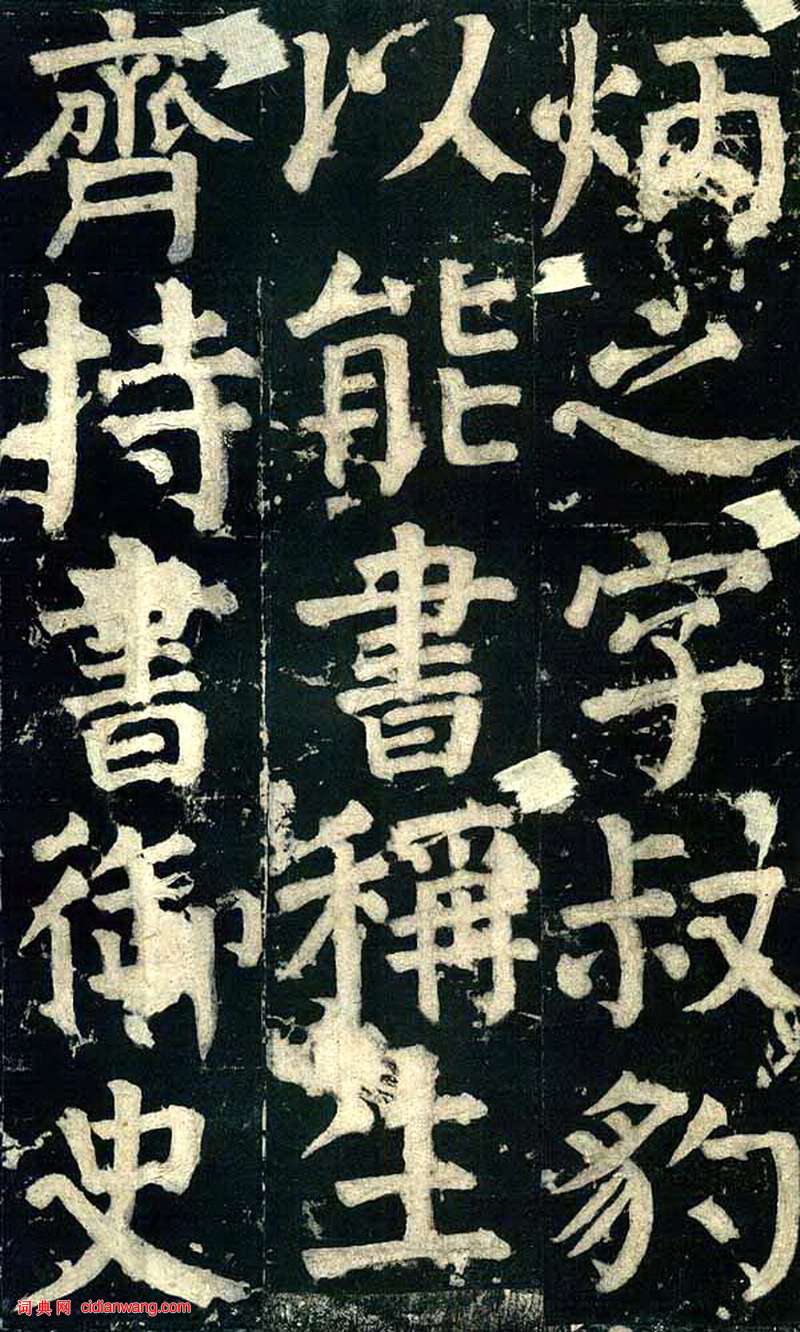 炳之字叔豹
以能書稱生
齊持書御史
词典网 cidianwang.com